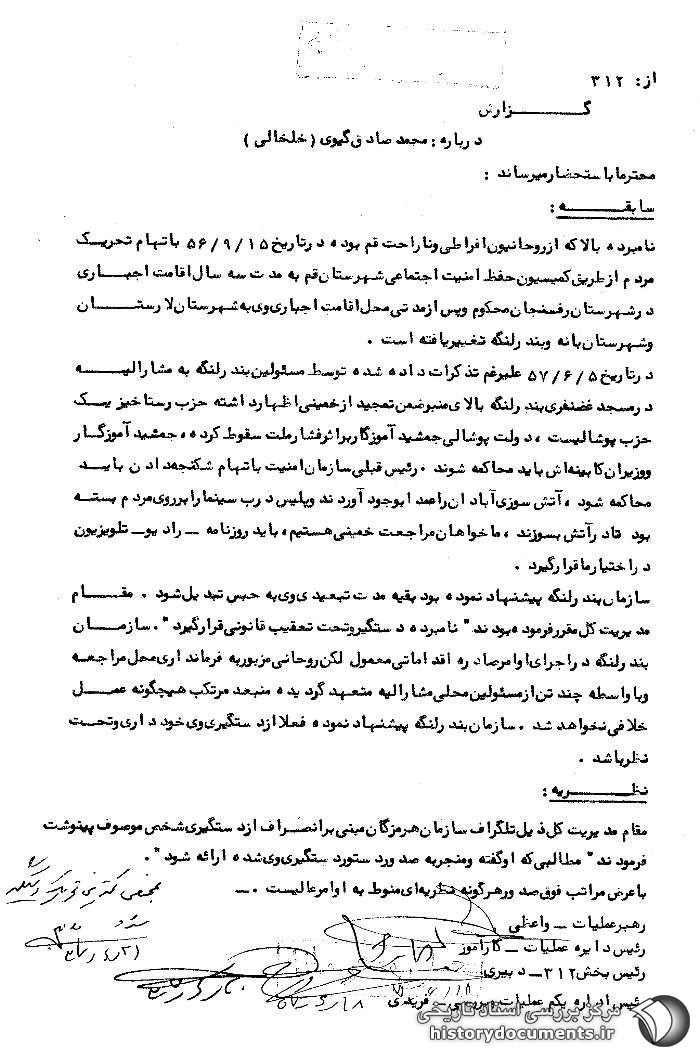 از: ۳۱۲
گـــــزارش
درباره: محمد صادق گیوی (خلخالی)
محترما باستحضار میرساند:
سابقـــــه:
نامبرده بالا که از روحانیون افراطی و ناراحت قم بوده در تاریخ ۵۶/۹/۱۵ باتهام تحریک
مردم از طریق کمیسیون حفظ امنیت اجتماعی شهرستان قم به مدت سه سال اقامت اجباری
در شهرستان رفسنجان محکوم و پس از مدتی محل اقامت اجباری وی به شهرستان لارستـــان
و شهرستان بانه و بندر لنگه تغییر یافته است.
در تاریخ ۵۷/۶/۵ علیرغم تذکرات داده شده توسط مسئولین بندر لنگه به مشارالیـــه
در مسجد غضنفری بندر لنگه بالای منبر ضمن تمجید از خمینی اظهار داشته حزب رستاخیز یک
حزب پوشالیست، دولت پوشالی جمشید آموزگار بر اثر فشار ملت سقوط کرده، جمشید آموزگار
و وزیران کابینه‌اش باید محاکمه شوند. رئیس قبلی سازمان امنیت باتهام شکنجه دادن بایـد
محاکمه شود، آتش سوزی آبادان را عمدا بوجود آوردند و پلیس درب سینما را بر روی مردم بسته
بود تا در آتش بسوزند، ما خواهان مراجعت خمینی هستیم، باید روزنامه ـ رادیو ـ تلویزیون
در اختیار ما قرار گیرد.
سازمان بندر لنگه پیشنهاد نموده بود بقیه مدت تبعیدی وی به حبس تبدیل شود. مقـــام
مدیریت کل مقرر فرموده بودند "نامبرده دستگیر و تحت تعقیب قانونی قرار گیرد". سازمـــان
بندر لنگه در اجرای اوامر صادره اقداماتی معمول لکن روحانی مزبور به فرمانداری محل مراجعه
و با واسطه چند تن از مسئولین محلی مشارالیه متعهد گردیده منبعد مرتکب هیچگونه عمـــل
خلافی نخواهد شد. سازمان بندر لنگه پیشنهاد نموده فعلا از دستگیری وی خودداری و تحت
نظر باشد.
نظـــــریه:
مقام مدیریت کل ذیل تلگراف سازمان هرمزگان مبنی بر انصراف از دستگیری شخص موصوف پینوشت
فرمودند "مطالبی که او گفته و منجر به صدور دستور دستگیری وی شده ارائه شود".
با عرض مراتب فوق صدور هرگونه نظریه‌ای منوط به اوامر عالیست. ـــ
رهبر عملیات ـ واعظی
رئیس دایره عملیات ـ کارآموز
رئیس بخش ۳۱۲ ـ دبیری
رئیس اداره یکم عملیات و بررسی
مرکز بررسی اسناد تاریخی
historydocuments.ir